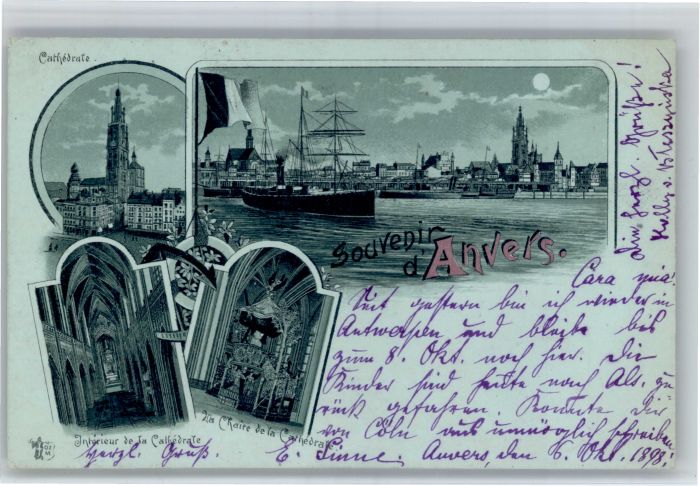 Cathédrale.
Souvenir
d'Anvers.
Intérieur de la Cathédrale
La Chaire de la Cathédrale
Cara mia!
Seit gestern bin ich wieder in
Antwerpen und bleibe bis
zum 8. Okt. noch hier. Die
Kinder sind heute nach Als. zu
rück gefahren. Konnte Dir
von Cöln aus unmöglich schreiben
Herzl. Gruß. E. Anvers, den 6. Okt. 1898.
herzl. Grüße!
Kelly v.